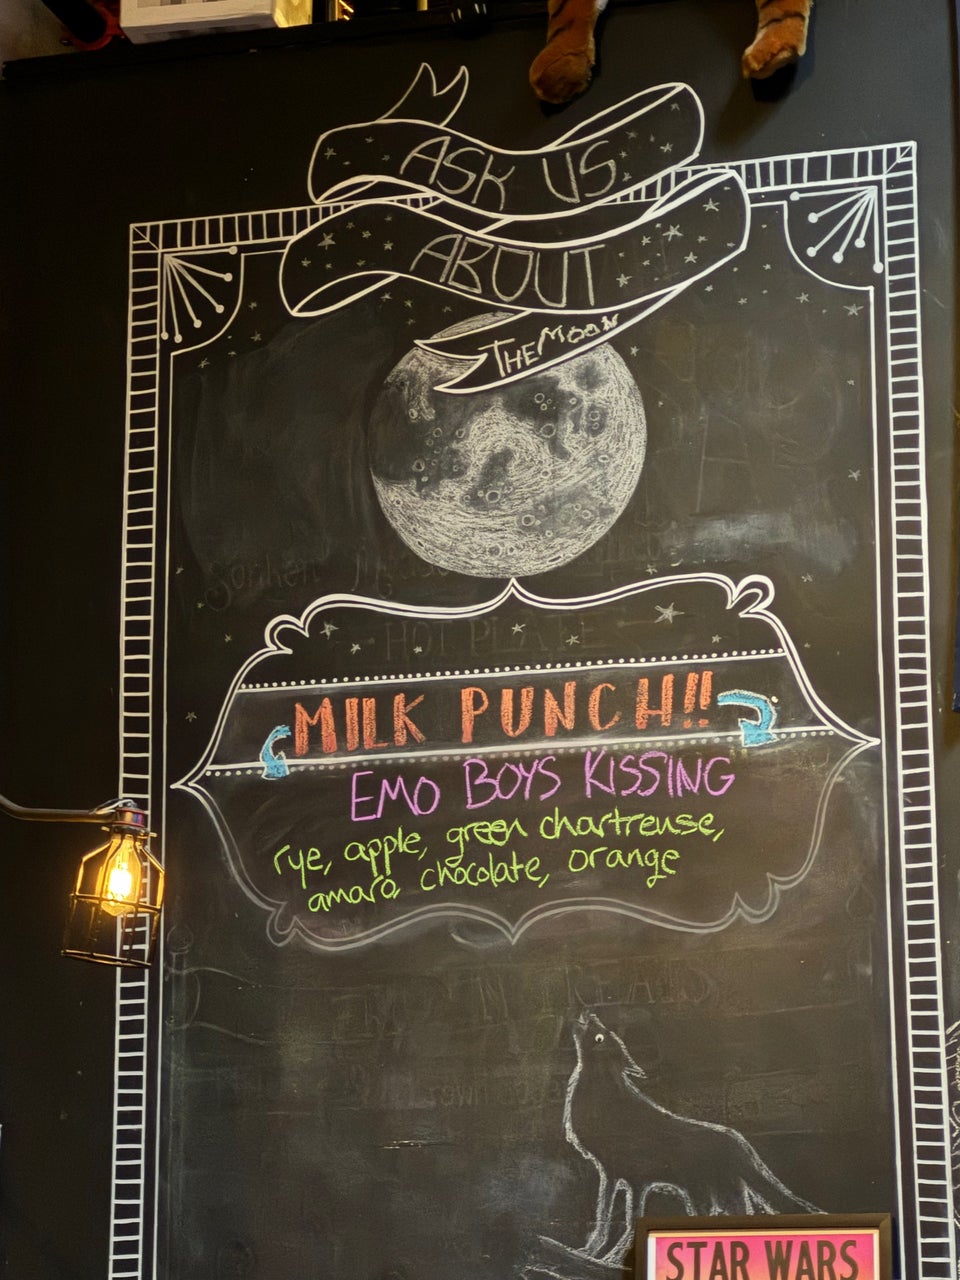 ASK US
ABOUT
THE MOON
HOT PLATE
MILK PUNCH!!
EMO BOYS KISSING
rye, apple, green chartreuse,
amaro, chocolate, orange
STAR WARS